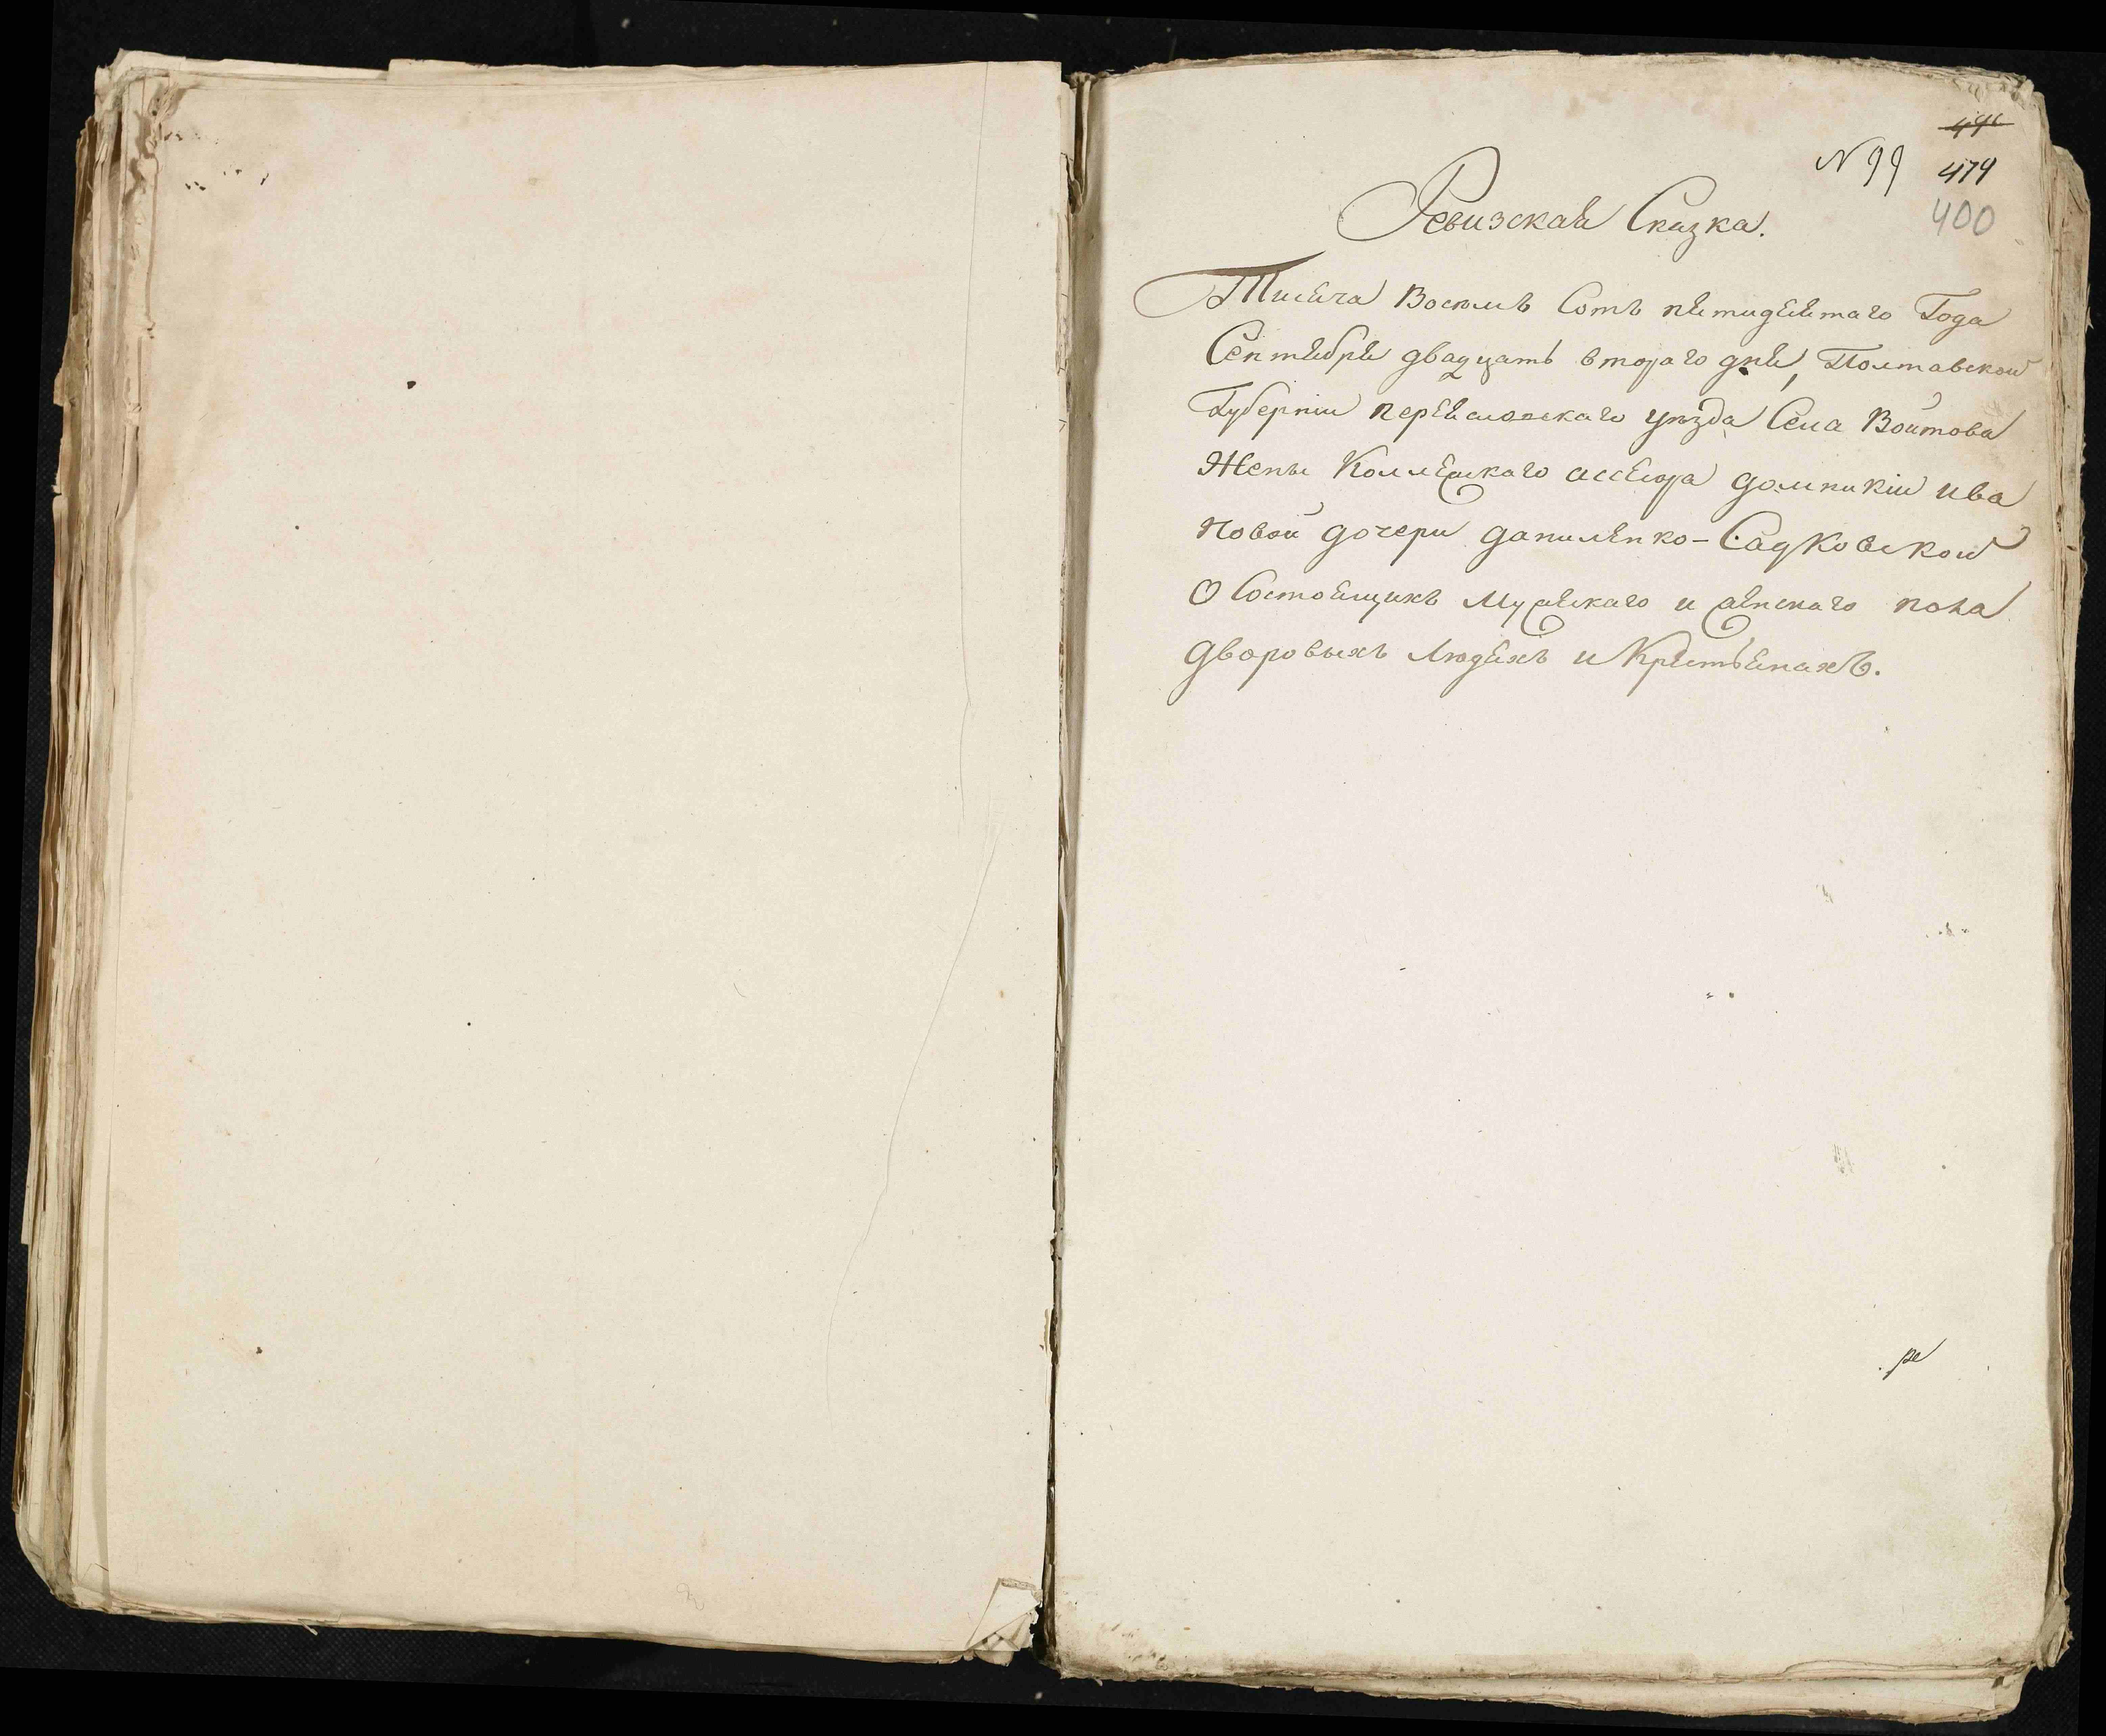 N 99
479
400
Ревизская Сказка.
Тисяча Восемь Сотъ пятидесятаго Года
Сентября двадцать втораго дня, Полтавской
Губерніи переясловскаго уезда Села Войтова
Жены Коллежскаго ассесора домникіи ива
новой дочери даниленко-Садковской
О Состоящихъ Мужескаго и женскаго пола
дворовыхъ Людяхъ и Крестьянахъ.
ре